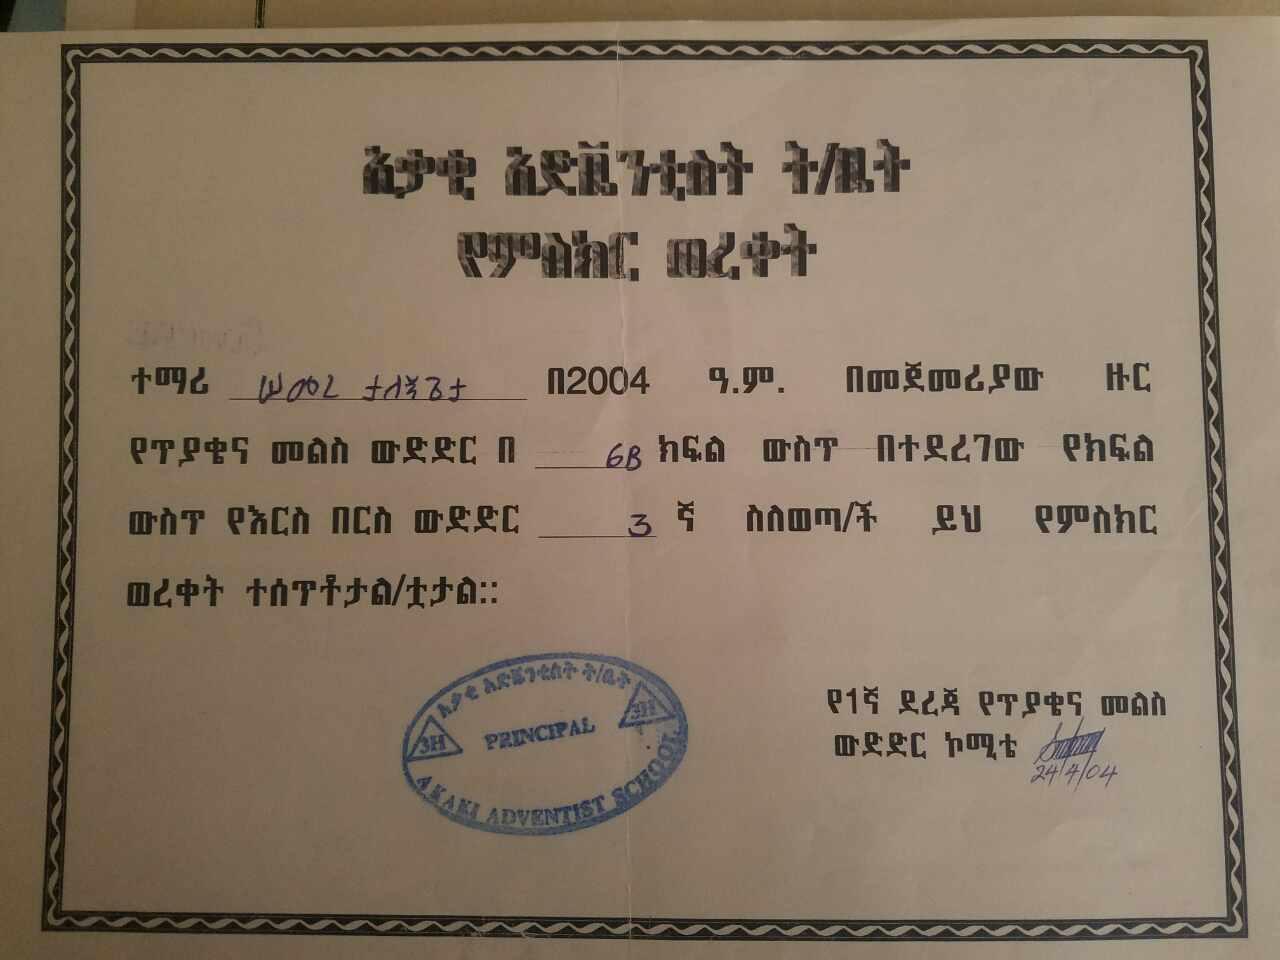 አቃቂ አድቬንቲስት ት/ቤት
የምስክር ወረቀት
ተማሪ በ2004 ዓ.ም. በመጀመሪያው ዙር
የጥያቄና መልስ ውድድር በ 6B ክፍል ውስጥ በተደረገው የክፍል
ውስጥ የእርስ በርስ ውድድር 3 ኛ ስለወጣ/ች ይህ የምስክር
ወረቀት ተሰጥቶታል/ቷታል::
አቃቂ አድቬንቲስት ት/ቤት
3H PRINCIPAL 3H
AKAKI ADVENTIST SCHOOL
የ1ኛ ደረጃ የጥያቄና መልስ
ውድድር ኮሚቴ
24/4/04